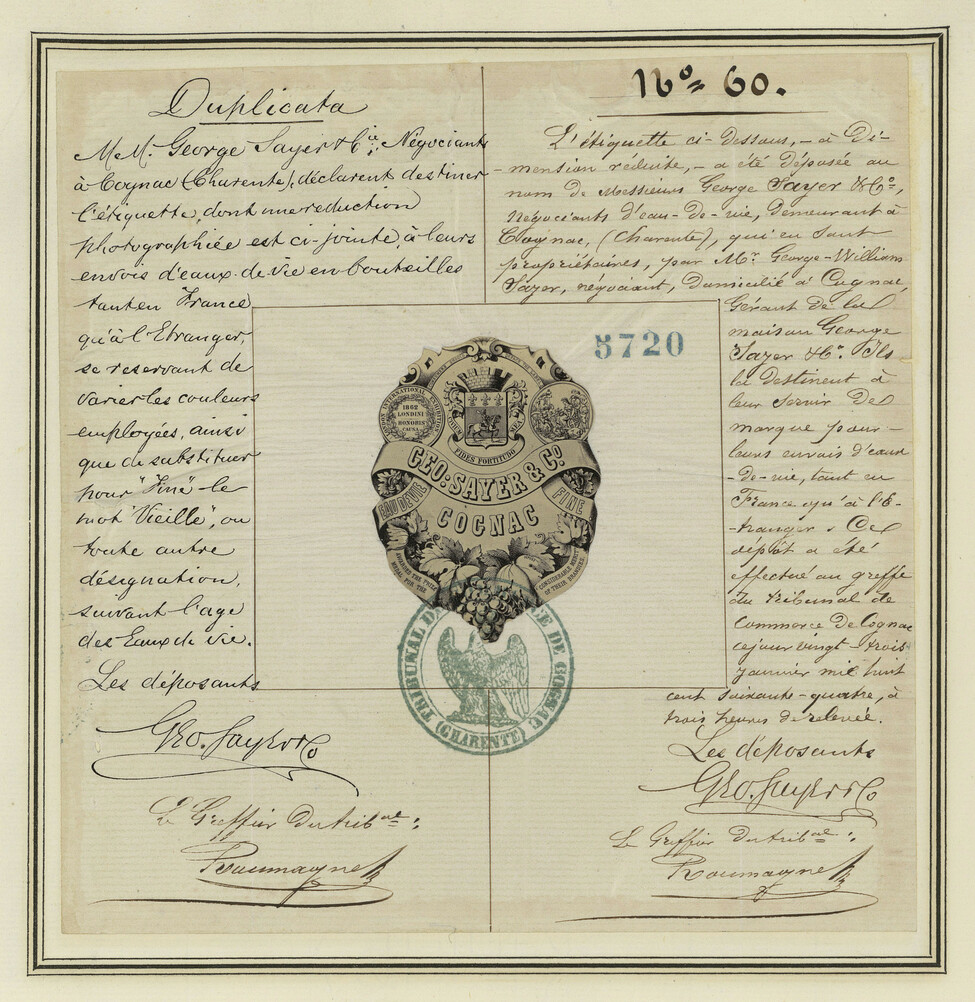 Duplicata
M.M. George Sayer & Cie, Négociants
à Cognac (Charente), déclarent destiner
l'étiquette, dont une reduction
photographiée est ci-jointe, à leurs
envois d'eaux-de-vie en bouteilles
tant en France
qu'à l'Etranger,
se reservant de
varier les couleurs
employées, ainsi
que de substituer
pour "Fine" le
mot "Vieille", ou
toute autre
désignation,
suivant l'age
des Eaux de vie.
Les déposants
Geo. Sayer & Co
Le Greffier du tribal:
Roumagne
No 60.
L'étiquette ci-dessous, - à di-
-mension réduite, - a été déposée au
nom de Messieurs George Sayer & Co,
négociants d'eau-de-vie, demeurant à
Cognac, (Charente), qui en sont
propriétaires, par Mr George-William
Sayer, négociant, domicilié à Cognac,
Gérant de la
maison George
Sayer & Co. Ils
la destinent à
leur servir de
marque pour
leurs envois d'eaux
-de-vie, tant en
France qu'à l'É-
-tranger. Ce
dépôt a été
effectué au greffe
du tribunal de
Commerce de Cognac
ce jour vingt-trois
janvier mil huit
cent soixante-quatre, à
trois heures de relevée.
Les déposants
Geo. Sayer & Co
Le Greffier du tribal:
Roumagne
5720
INTERNATIONAL EXHIBITION
1862
LONDINI
HONORIS
CAUSA
FIDES FORTITUDO
GEO: SAYER & Co
EAU DE VIE
FINE
COGNAC
AWARDED THE PRIZE
MEDAL FOR THE
CONSIDERABLE MERIT
OF THEIR BRANDIES
TRIBUNAL DE COMMERCE DE COGNAC
(CHARENTE)